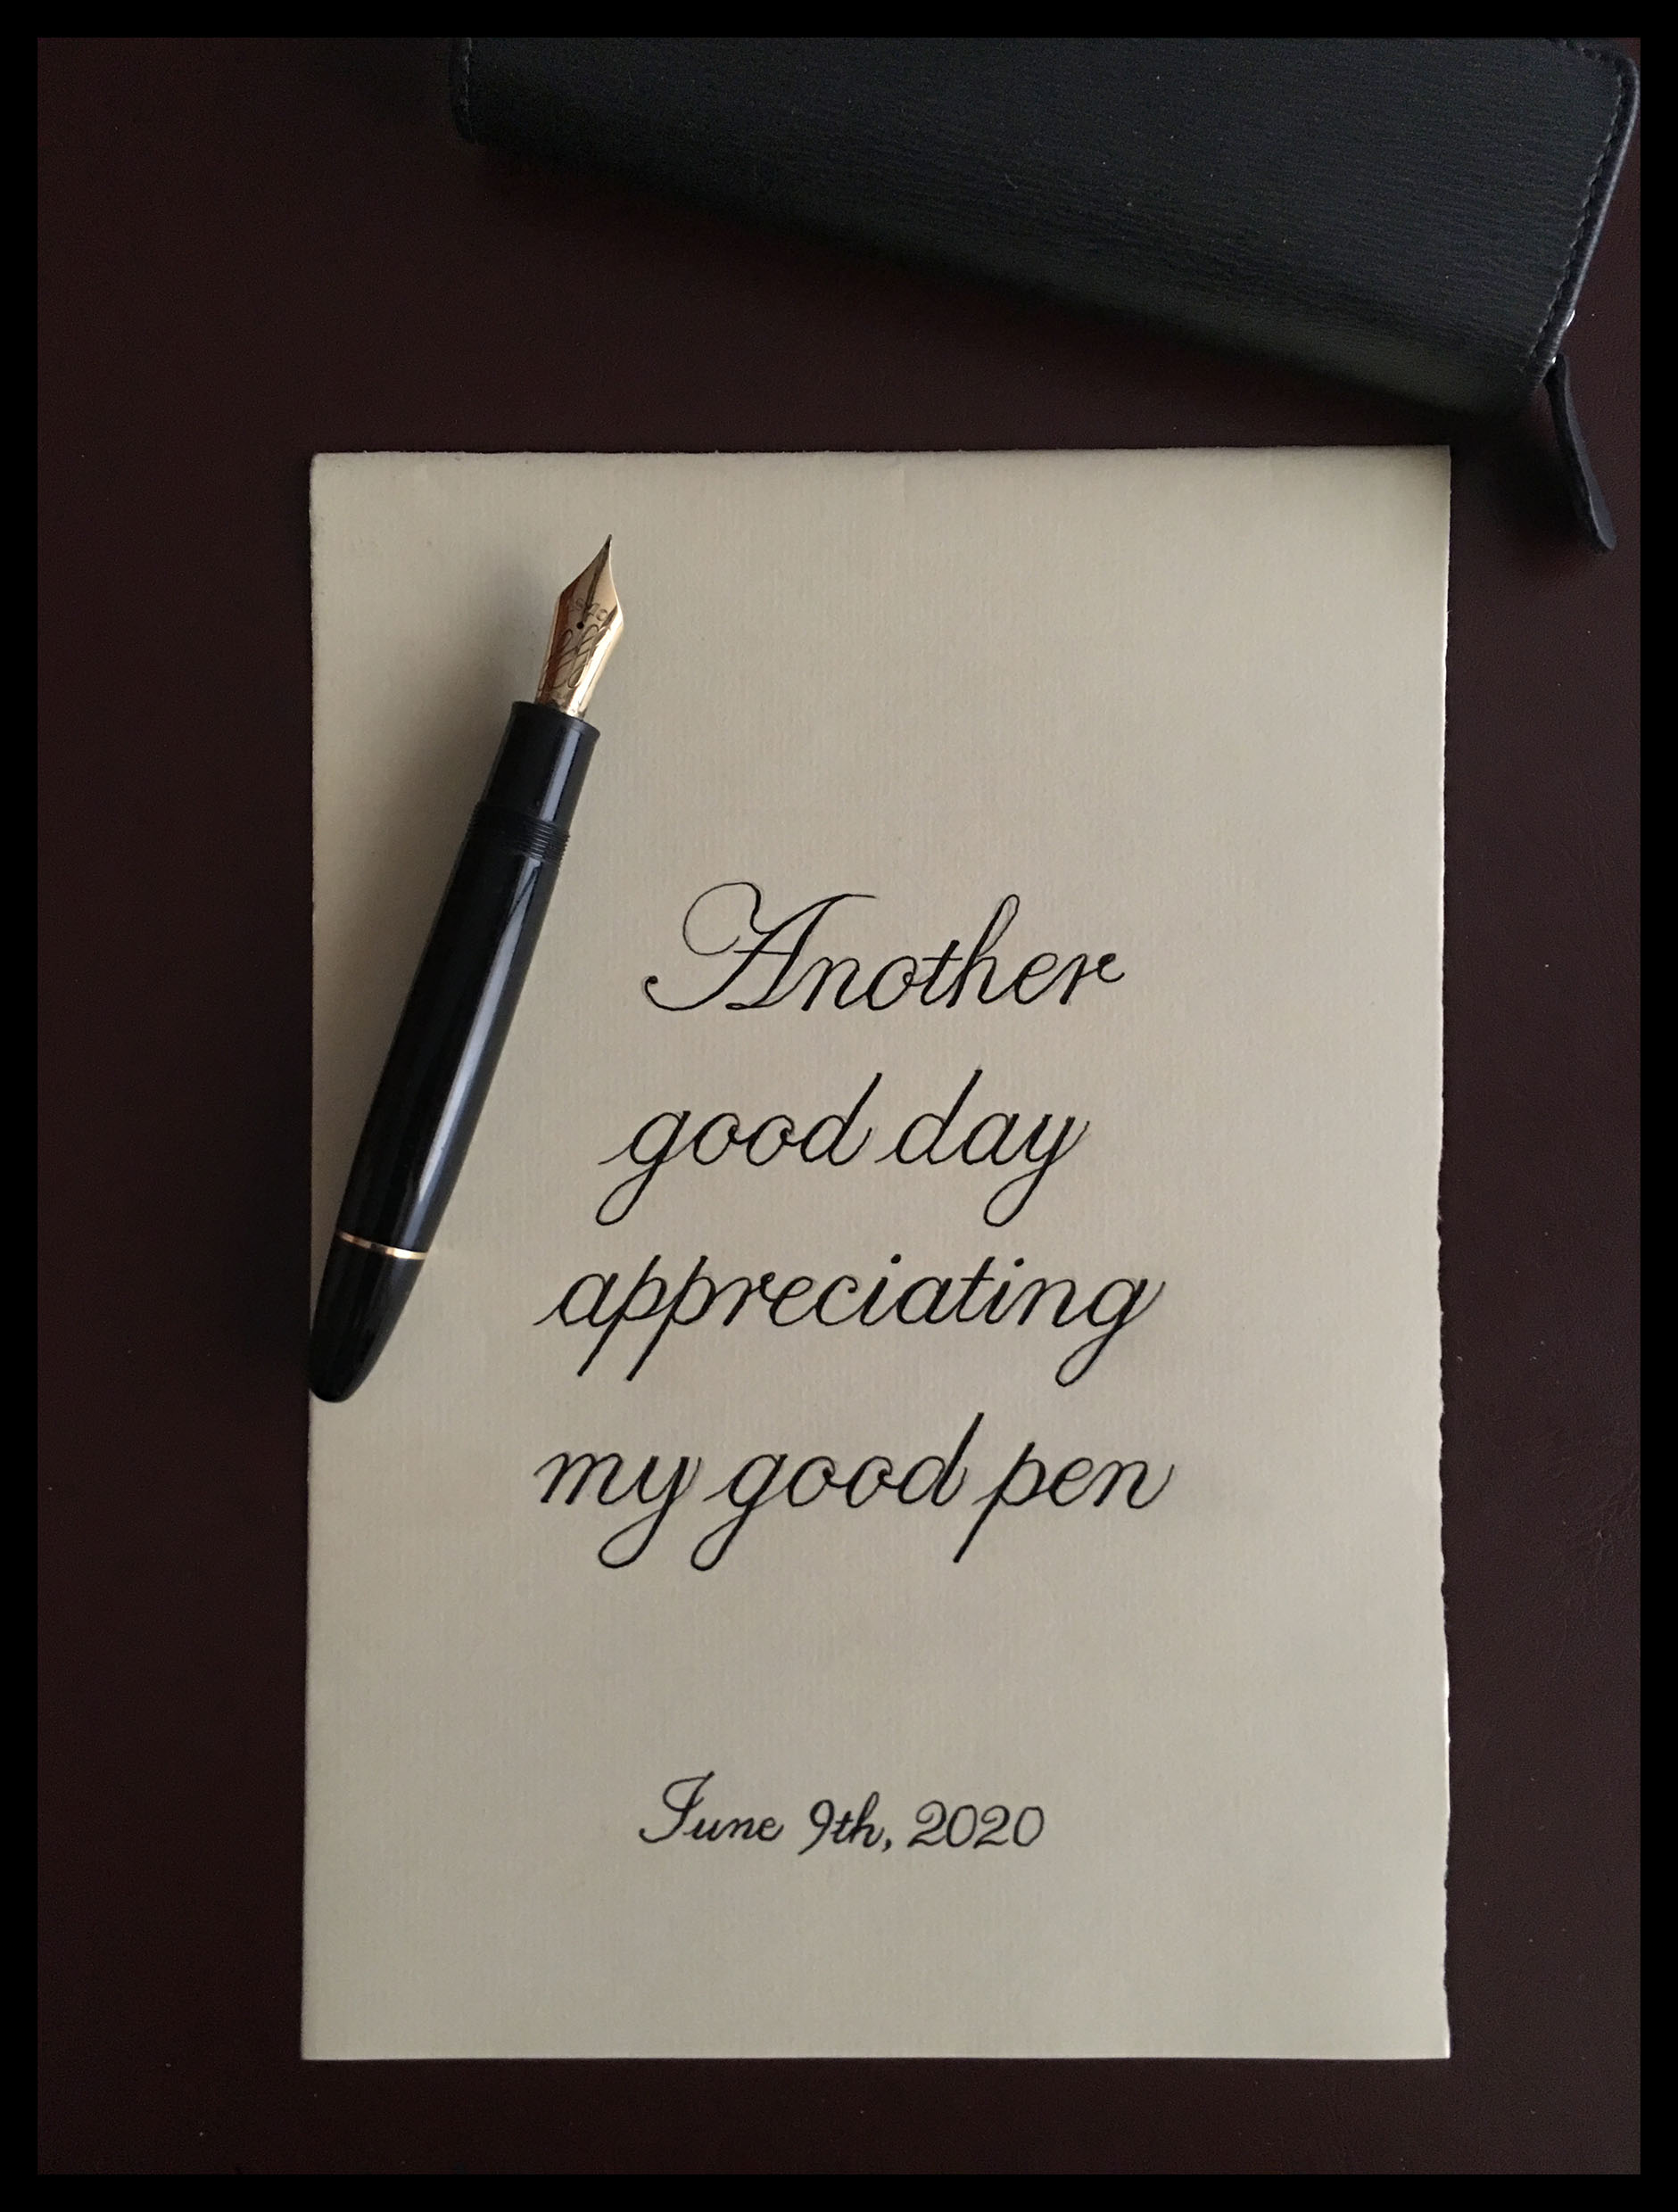 Another
good day
appreciating
my good pen
June 9th, 2020